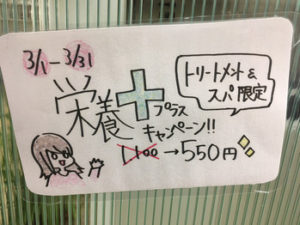 3/1 - 3/31
トリートメント&
スパ限定
栄養+プラス
キャンペーン!!
1100→550円